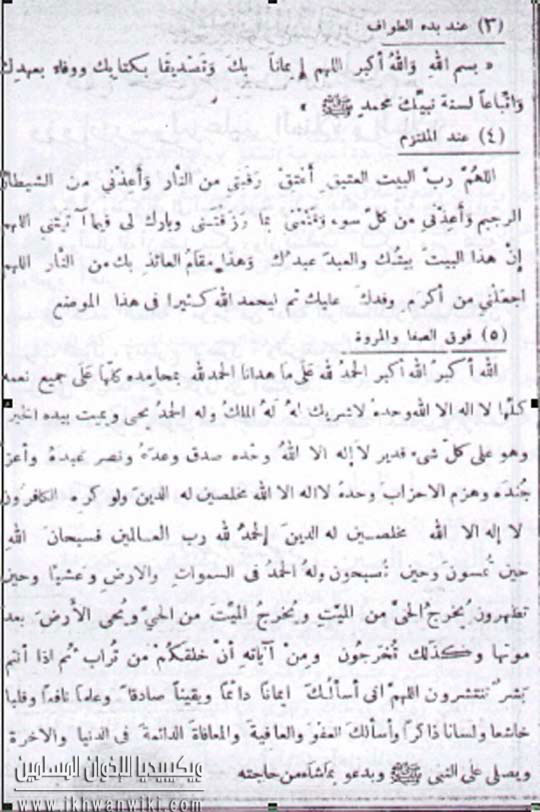 (٣) عند بدء الطواف
« بسم اللهِ وَاللهُ أكبر اللهم إيماناً بكَ وَتَصْديقَا بكتابك ووفاء بعهدِك
وَاتّباعاً لسنة نبيّك محمدٍ ﷺ »
(٤) عند الملتزم
اللهُمّ ربّ البيت العتيق أعتق رَقبتي من النّار وَأعِذْني من الشيطان
الرجيم وَأعِذْني من كلّ سوء وَقَنّعْني بما رَزقتَني وبارك لي فيما آتيتَني اللهم
إنّ هذا البيت بيتُك والعبدَ عبدُك وَهذا مقامُ العائذ بك من النار اللهم
اجعَلْني من أكرَم وفدكَ عليك ثم ليحمد الله كثيرا في هذا الموضع
(٥) فوق الصفا والمروة
الله أكبر الله أكبر الحمدُ لله عَلى ما هدانا الحمدُ لله بمحامده كلّها عَلى جميع نعمه
كلّها لا اله الا الله وحدهُ لا شريكَ لهُ لهُ الملكُ وله الحمدُ يحيى ويميت بيده الخيرُ
وهو على كلّ شىء قدير لا إله الا اللهُ وحْده صدق وعدَهُ ونصر عبدهُ وأعز
جُنْدَه وهزم الاحزاب وحدَهُ لا اله الا الله مخلصين له الدينَ ولو كره الكافرون
لا إله الا الله مخلصين له الدينَ الحمدُ لله رب العالمين فسبحانَ اللهِ
حينَ تُمسونَ وحينَ تُصبحون ولهُ الحمدُ فى السموات والارضِ وعشيّا وحينَ
تظهرون يُخرجُ الحىّ من الميّتِ ويُخرجُ الميّتَ من الحيّ ويُحيى الأرضَ بعد
موتها وكذلكَ تُخرَجُون ومِنْ آياتِه أنْ خلقكُمْ من تُرابٍ ثمّ اذا أنتم
بَشرٌ تنتشرون اللهمّ انى أسألُكَ ايمانًا دائمًا ويقينًا صادقاً وعلمًا نافعًا وقلبا
خاشعا ولسانا ذاكرًا وأسألكَ العفوَ والعافيةَ والمعافاةَ الدائمةَ فى الدنيا والآخرة
ويصلى على النبى ﷺ ويدعو بما شاء من حاجته
ويكيبيديا الإخوان المسلمين
www.ikhwanwiki.com